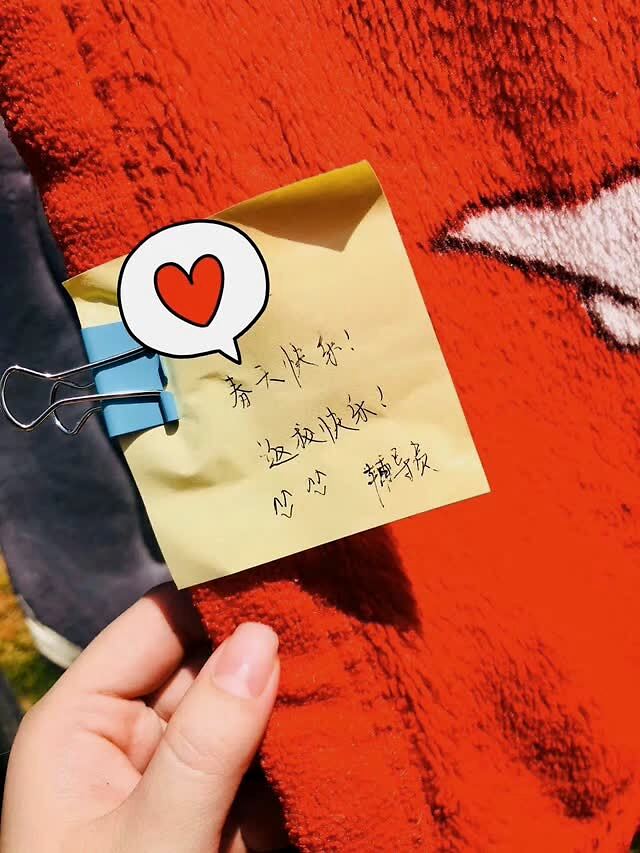 春天快乐！
返校快乐！
辅导员